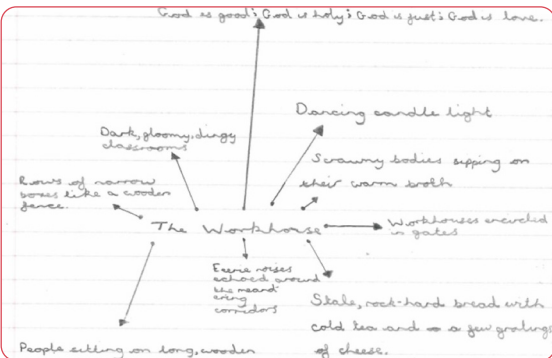 God is good; God is holy; God is just; God is love.
Dancing candle light
Dark, gloomy, dingy
classrooms
Scrawny bodies supping on
their warm broth
Rows of narrow
boxes like a wooden
fence.
The Workhouse
Workhouses encircled
in gates
Eerie noises
echoed around
the meand
ering
corridors
Stale, rock-hard bread with
cold tea and a few gratings
of cheese.
People sitting on long, wooden